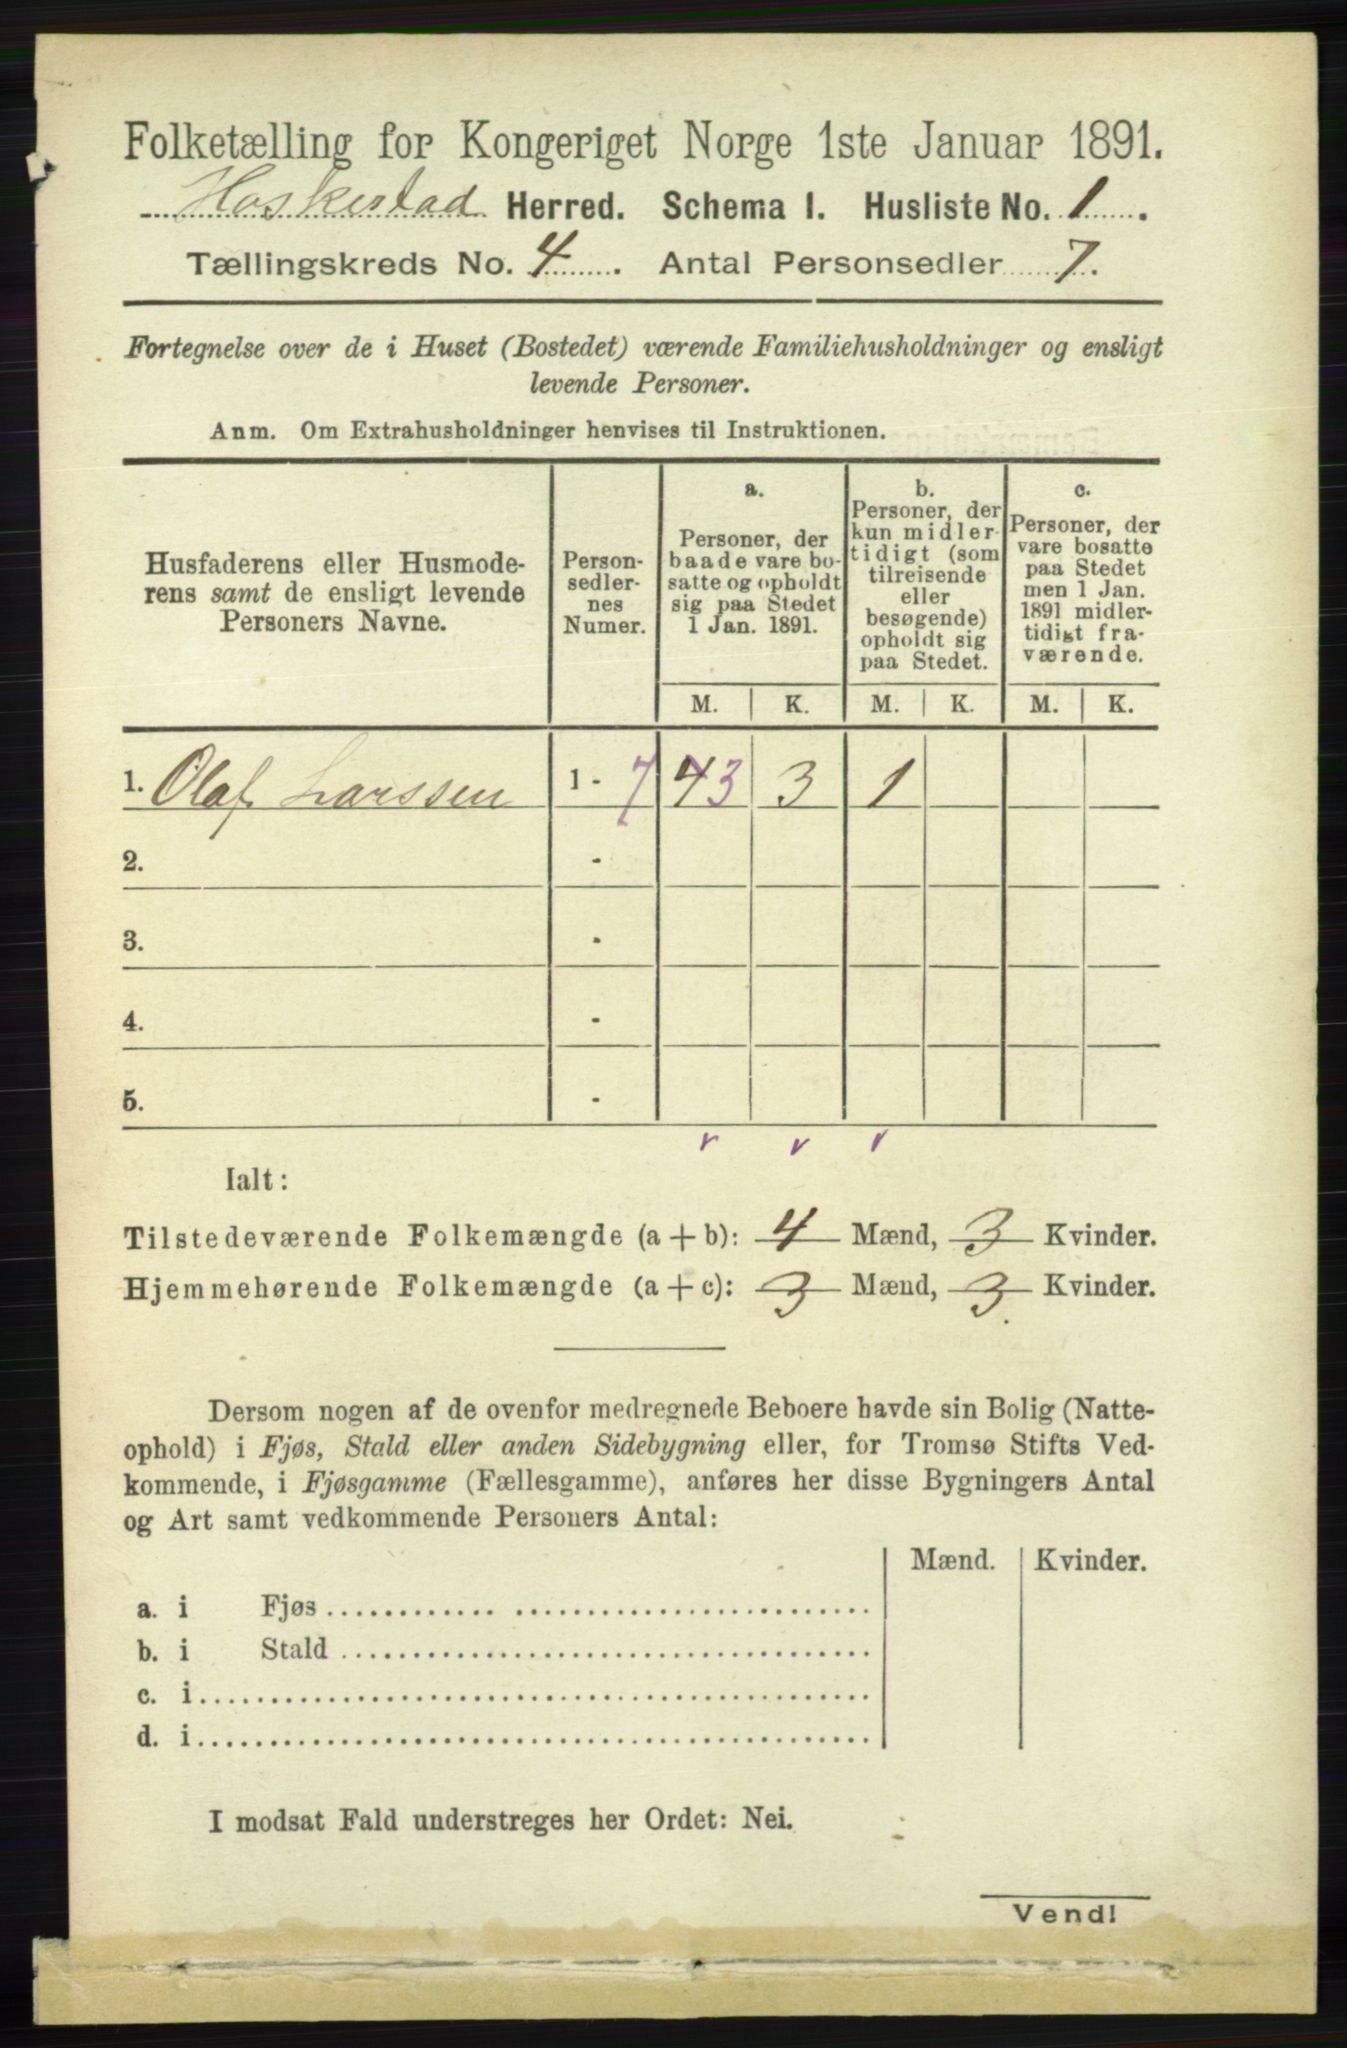 Folketælling for Kongeriget Norge 1ste Januar 1891.
Haskestad Herred. Schema 1. Husliste No. 1.
Tællingskreds No. 4. Antal Personsedler 7.
Fortegnelse over de i Huset (Bostedet) værende Familiehusholdninger og ensligt
levende Personer.
Anm. Om Extrahusholdninger henvises til Instruktionen.
Husfaderens eller Husmode-
rens samt de ensligt levende
Personers Navne.
Person-
sedler-
nes
Numer.
a.
Personer, der
baade vare bo-
satte og opholdt
sig paa Stedet
1 Jan. 1891.
b.
Personer, der
kun midler-
tidigt (som
tilreisende
eller
besøgende)
opholdt sig
paa Stedet.
c.
Personer, der
vare bosatte
paa Stedet
men 1 Jan.
1891 midler-
tidigt fra-
værende.
M. K. M. K. M. K.
1. Olaf Larssen 1 - 7 4 3 3 1
2. -
3. -
4. -
5. -
Ialt:
Tilstedeværende Folkemængde (a + b): 4 Mænd, 3 Kvinder.
Hjemmehørende Folkemængde (a + c): 3 Mænd, 3 Kvinder.
Dersom nogen af de ovenfor medregnede Beboere havde sin Bolig (Natte-
ophold) i Fjøs, Stald eller anden Sidebygning eller, for Tromsø Stifts Ved-
kommende, i Fjøsgamme (Fællesgamme), anføres her disse Bygningers Antal
og Art samt vedkommende Personers Antal:
Mænd. Kvinder.
a. i Fjøs
b. i Stald
c. i
d. i
I modsat Fald understreges her Ordet: Nei.
Vend!